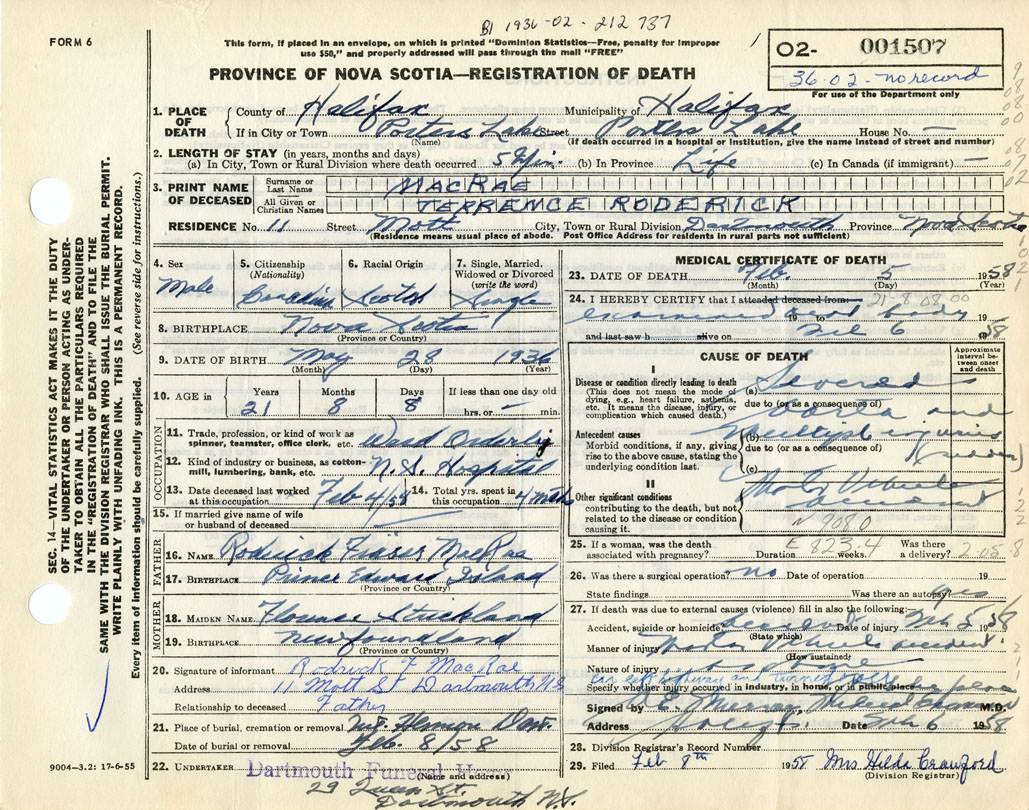 BI 1936-02-212737
FORM 6
This form, if placed in an envelope, on which is printed "Dominion Statistics—Free, penalty for improper
use $50," and properly addressed will pass through the mail "FREE"
02- 001507
36-02-no record
For use of the Department only
PROVINCE OF NOVA SCOTIA—REGISTRATION OF DEATH
SEC. 14—VITAL STATISTICS ACT MAKES IT THE DUTY
OF THE UNDERTAKER OR PERSON ACTING AS UNDER-
TAKER TO OBTAIN ALL THE PARTICULARS REQUIRED
IN THE "REGISTRATION OF DEATH" AND TO FILE THE
SAME WITH THE DIVISION REGISTRAR WHO SHALL ISSUE THE BURIAL PERMIT.
WRITE PLAINLY WITH UNFADING INK. THIS IS A PERMANENT RECORD.
Every item of information should be carefully supplied. (See reverse side for instructions.)
1. PLACE OF DEATH
County of Halifax Municipality of Halifax
If in City or Town Porters Lake Street Porters Lake House No. —
(Name) (If death occurred in a hospital or institution, give the name instead of street and number)
2. LENGTH OF STAY (in years, months and days)
(a) In City, Town or Rural Division where death occurred (b) In Province Life (c) In Canada (if immigrant) —
3. PRINT NAME OF DECEASED
Surname or Last Name MACRAE
All Given or Christian Names TERRENCE RODERICK
RESIDENCE No. 11 Street Mott City, Town or Rural Division Dartmouth Province Nova Scotia
(Residence means usual place of abode. Post Office Address for residents in rural parts not sufficient)
4. Sex Male
5. Citizenship (Nationality) Canadian
6. Racial Origin Scotch
7. Single, Married, Widowed or Divorced (write the word) Single
8. BIRTHPLACE Nova Scotia
(Province or Country)
9. DATE OF BIRTH May 28 1936
(Month) (Day) (Year)
10. AGE in Years 21 Months 8 Days 8 If less than one day old hrs. or — min.
OCCUPATION
11. Trade, profession, or kind of work as spinner, teamster, office clerk, etc. Ward Orderly
12. Kind of industry or business, as cotton-mill, lumbering, bank, etc. N.S. Hospital
13. Date deceased last worked at this occupation Feb 4/58 14. Total yrs. spent in this occupation 4 mths
15. If married give name of wife or husband of deceased
FATHER
16. NAME Rodrick Fraser MacRae
17. BIRTHPLACE Prince Edward Island
(Province or Country)
MOTHER
18. MAIDEN NAME Florence Strickland
19. BIRTHPLACE Newfoundland
(Province or Country)
20. Signature of informant Rodrick F MacRae
Address 11 Mott St Dartmouth N.S
Relationship to deceased Father
21. Place of burial, cremation or removal Mt. Hermon Dart.
Date of burial or removal Feb. 8/58
22. UNDERTAKER Dartmouth Funeral Home
(Name and address)
29 Queen St.
Dartmouth N.S.
9004-3.2: 17-6-55
MEDICAL CERTIFICATE OF DEATH
23. DATE OF DEATH Feb. 5 1958
(Month) (Day) (Year)
24. I HEREBY CERTIFY that I attended deceased from:
examined dead body
19 to Feb 6 1958
and last saw h alive on 19
CAUSE OF DEATH
Approximate interval between onset and death
I
Disease or condition directly leading to death
(This does not mean the mode of dying, e.g., heart failure, asthenia, etc. It means the disease, injury, or complication which caused death.)
(a) Severed
due to (or as a consequence of)
Aorta and
Antecedent causes
Morbid conditions, if any, giving rise to the above cause, stating the underlying condition last.
(b) Multiple injuries
due to (or as a consequence of)
(c)
II
Other significant conditions contributing to the death, but not related to the disease or condition causing it.
Motor Vehicle
accident
N 908.0
E 823.4
25. If a woman, was the death associated with pregnancy? Duration weeks. Was there a delivery?
26. Was there a surgical operation? no Date of operation 19
State findings Was there an autopsy? yes
27. If death was due to external causes (violence) fill in also the following:
Accident, suicide or homicide? Date of injury Feb 5 1958
(State which)
Manner of injury Motor Vehicle accident
(How sustained)
Nature of injury
car left highway and turned over
Specify whether injury occurred in industry, in home, or in public place
Signed by Murray Medical Examiner M.D.
Address Halifax Date Feb 6 1958
28. Division Registrar's Record Number
29. Filed Feb 8th 1958 Mrs Hilda Crawford
(Division Registrar)